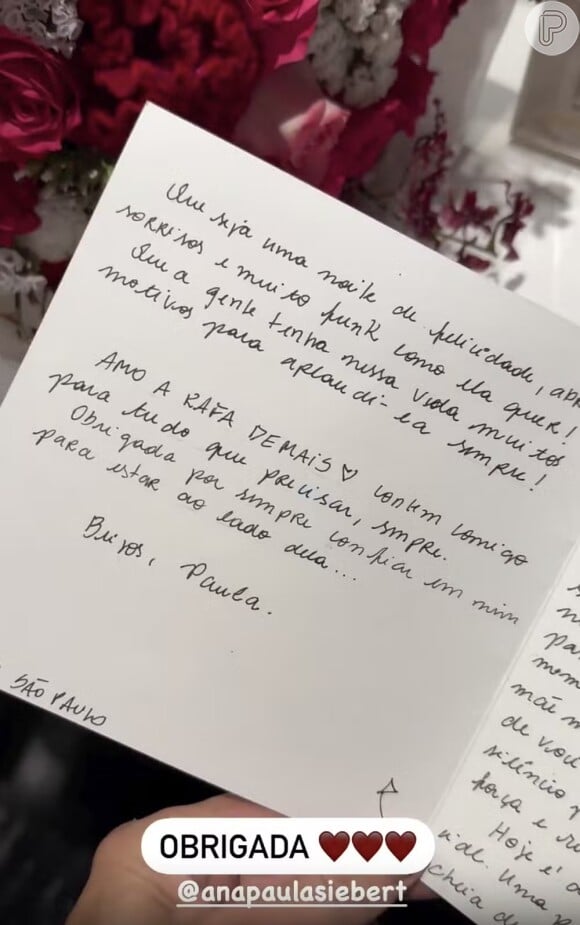 P
Que seja uma noite de felicidade, abr
sorrisos e muito funk como ela quer!
Que a gente tenha nessa vida muitos
motivos para aplaudi-la sempre!
AMO A RAFA DEMAIS ♡ Contem comigo
para tudo que precisar, sempre.
Obrigada por sempre confiar em mim
para estar ao lado dela...
Beijos, Paula.
SÃO PAULO
par
mem
mãe m
de vou
silêncio p
força e
Hoje é a
vial. Uma
cheia d
OBRIGADA ❤❤❤
@anapaulasiebert